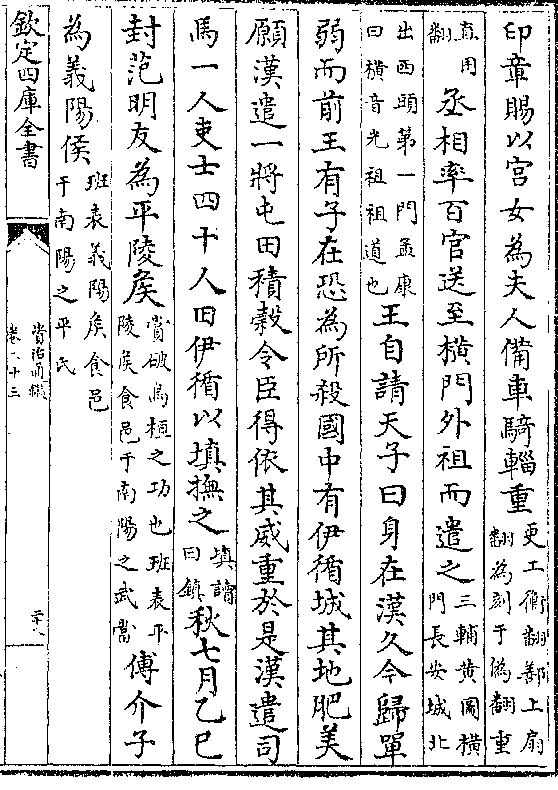 印章賜以宫女為夫人備車騎輜重更工衡翻鄯上扇翻為刻于偽翻重
直用翻丞相率百官送至橫門外祖而遣之三輔黃圖橫門長安城北
出西頭第一門孟康曰橫音光祖祖道也王自請天子曰身在漢久今歸單
弱而前王有子在恐為所殺國中有伊循城其地肥美
願漢遣一將屯田積穀令臣得依其威重於是漢遣司
馬一人吏士四十人田伊循以填撫之填讀曰鎮秋七月乙巳
封范明友為平陵侯賞破烏桓之功也班表平陵侯食邑于南陽之武當傅介子
為義陽侯班表義陽侯食邑于南陽之平氏
欽定四庫全書
資治通鑑
卷二十三
二十八